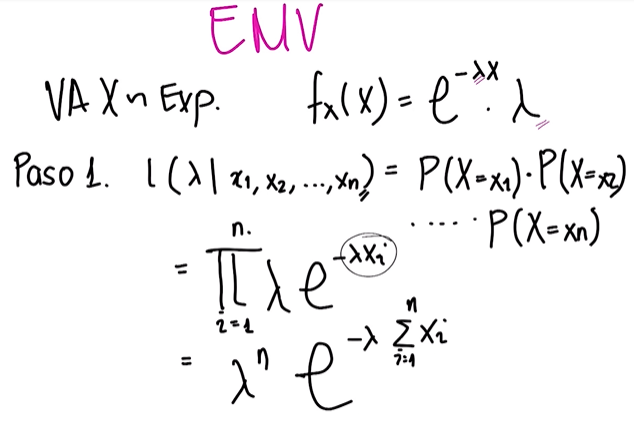 EMV
VA X ~ Exp. fx(x) = e^{-λx} · λ
Paso 1. l(λ| x1, x2, ..., xn) = P(X=x1)·P(X=x2)
····· P(X=xn)
= ∏_{i=1}^{n.} λ e^{-λxi}
= λ^n e^{-λ ∑_{i=1}^{n} xi}